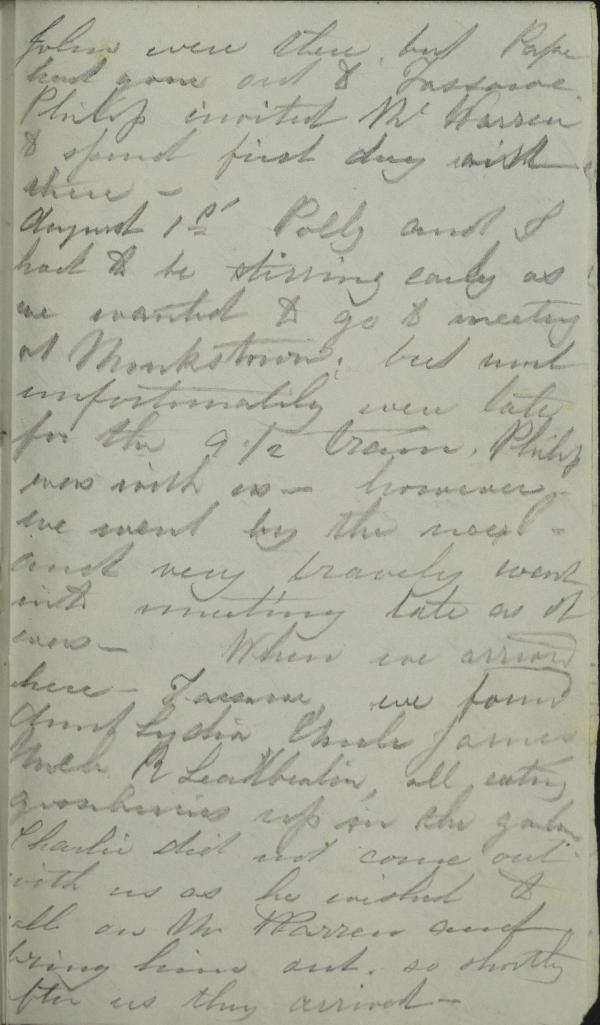 John were there, but Papa
had gone out to Fassaroe.
Philip invited Mr Warren
to spend first day with
them –
August 1st Polly and I
had to be stirring early as
we wanted to go to meeting
at Monkstown; but most
unfortunately were late
for the 9 1/2 train. Philip
was with us – however –
we went by the next –
and very bravely went
into meeting late as it
was – When we arrived
here – Fassaroe, we found
Aunt Lydia Uncle James
R Leadbeater, all eating
gooseberries up in the garden
Charlie did not come out
with us as he wished to
call on Mr Warren and
bring him out. so shortly
after us they arrived –